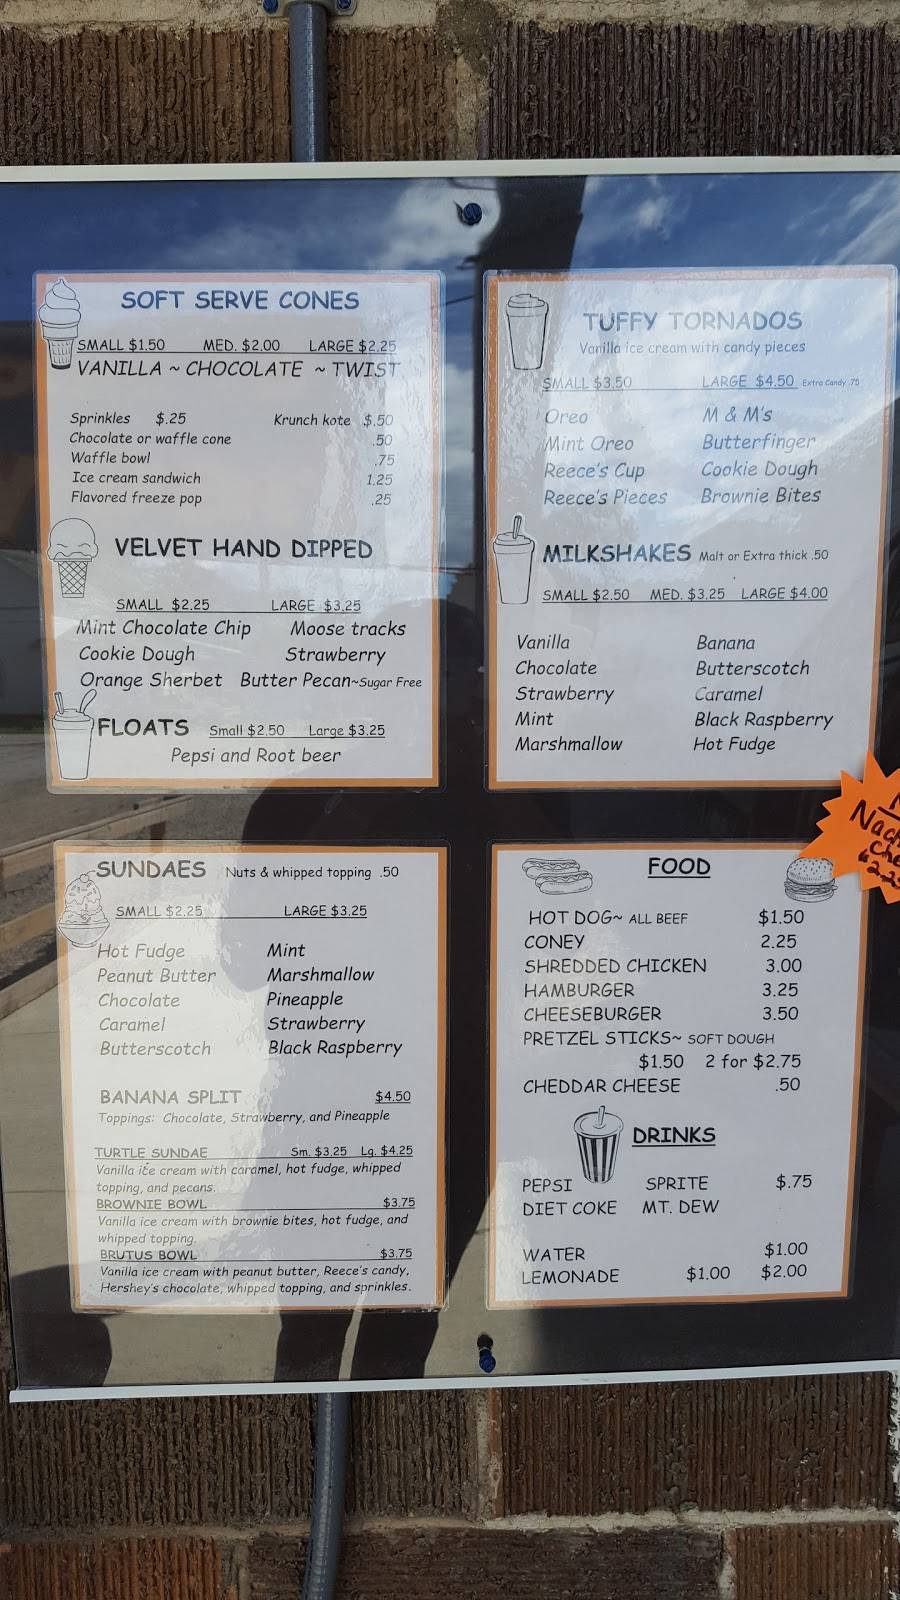 SOFT SERVE CONES
SMALL $1.50 MED. $2.00 LARGE $2.25
VANILLA ~ CHOCOLATE ~ TWIST
Sprinkles $.25 Krunch kote $.50
Chocolate or waffle cone .50
Waffle bowl .75
Ice cream sandwich 1.25
Flavored freeze pop .25
VELVET HAND DIPPED
SMALL $2.25 LARGE $3.25
Mint Chocolate Chip Moose tracks
Cookie Dough Strawberry
Orange Sherbet Butter Pecan~Sugar Free
FLOATS Small $2.50 Large $3.25
Pepsi and Root beer
TUFFY TORNADOS
Vanilla ice cream with candy pieces
SMALL $3.50 LARGE $4.50 Extra Candy .75
Oreo M & M's
Mint Oreo Butterfinger
Reece's Cup Cookie Dough
Reece's Pieces Brownie Bites
MILKSHAKES Malt or Extra thick .50
SMALL $2.50 MED. $3.25 LARGE $4.00
Vanilla Banana
Chocolate Butterscotch
Strawberry Caramel
Mint Black Raspberry
Marshmallow Hot Fudge
SUNDAES Nuts & whipped topping .50
SMALL $2.25 LARGE $3.25
Hot Fudge Mint
Peanut Butter Marshmallow
Chocolate Pineapple
Caramel Strawberry
Butterscotch Black Raspberry
BANANA SPLIT $4.50
Toppings: Chocolate, Strawberry, and Pineapple
TURTLE SUNDAE Sm. $3.25 Lg. $4.25
Vanilla ice cream with caramel, hot fudge, whipped
topping, and pecans.
BROWNIE BOWL $3.75
Vanilla ice cream with brownie bites, hot fudge, and
whipped topping.
BRUTUS BOWL $3.75
Vanilla ice cream with peanut butter, Reece's candy,
Hershey's chocolate, whipped topping, and sprinkles.
FOOD
HOT DOG~ ALL BEEF $1.50
CONEY 2.25
SHREDDED CHICKEN 3.00
HAMBURGER 3.25
CHEESEBURGER 3.50
PRETZEL STICKS~ SOFT DOUGH
$1.50 2 for $2.75
CHEDDAR CHEESE .50
DRINKS
PEPSI SPRITE $.75
DIET COKE MT. DEW
WATER $1.00
LEMONADE $1.00 $2.00